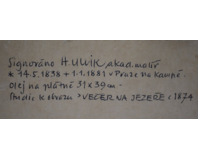 Signováno H. ULLIK, akad. malíř
* 14.5.1838 + 1.1.1881 v Praze na Kampě.
olej na plátně 31 x 39 cm.
k obrazu > VEČER NA JEZEŘE < 1874